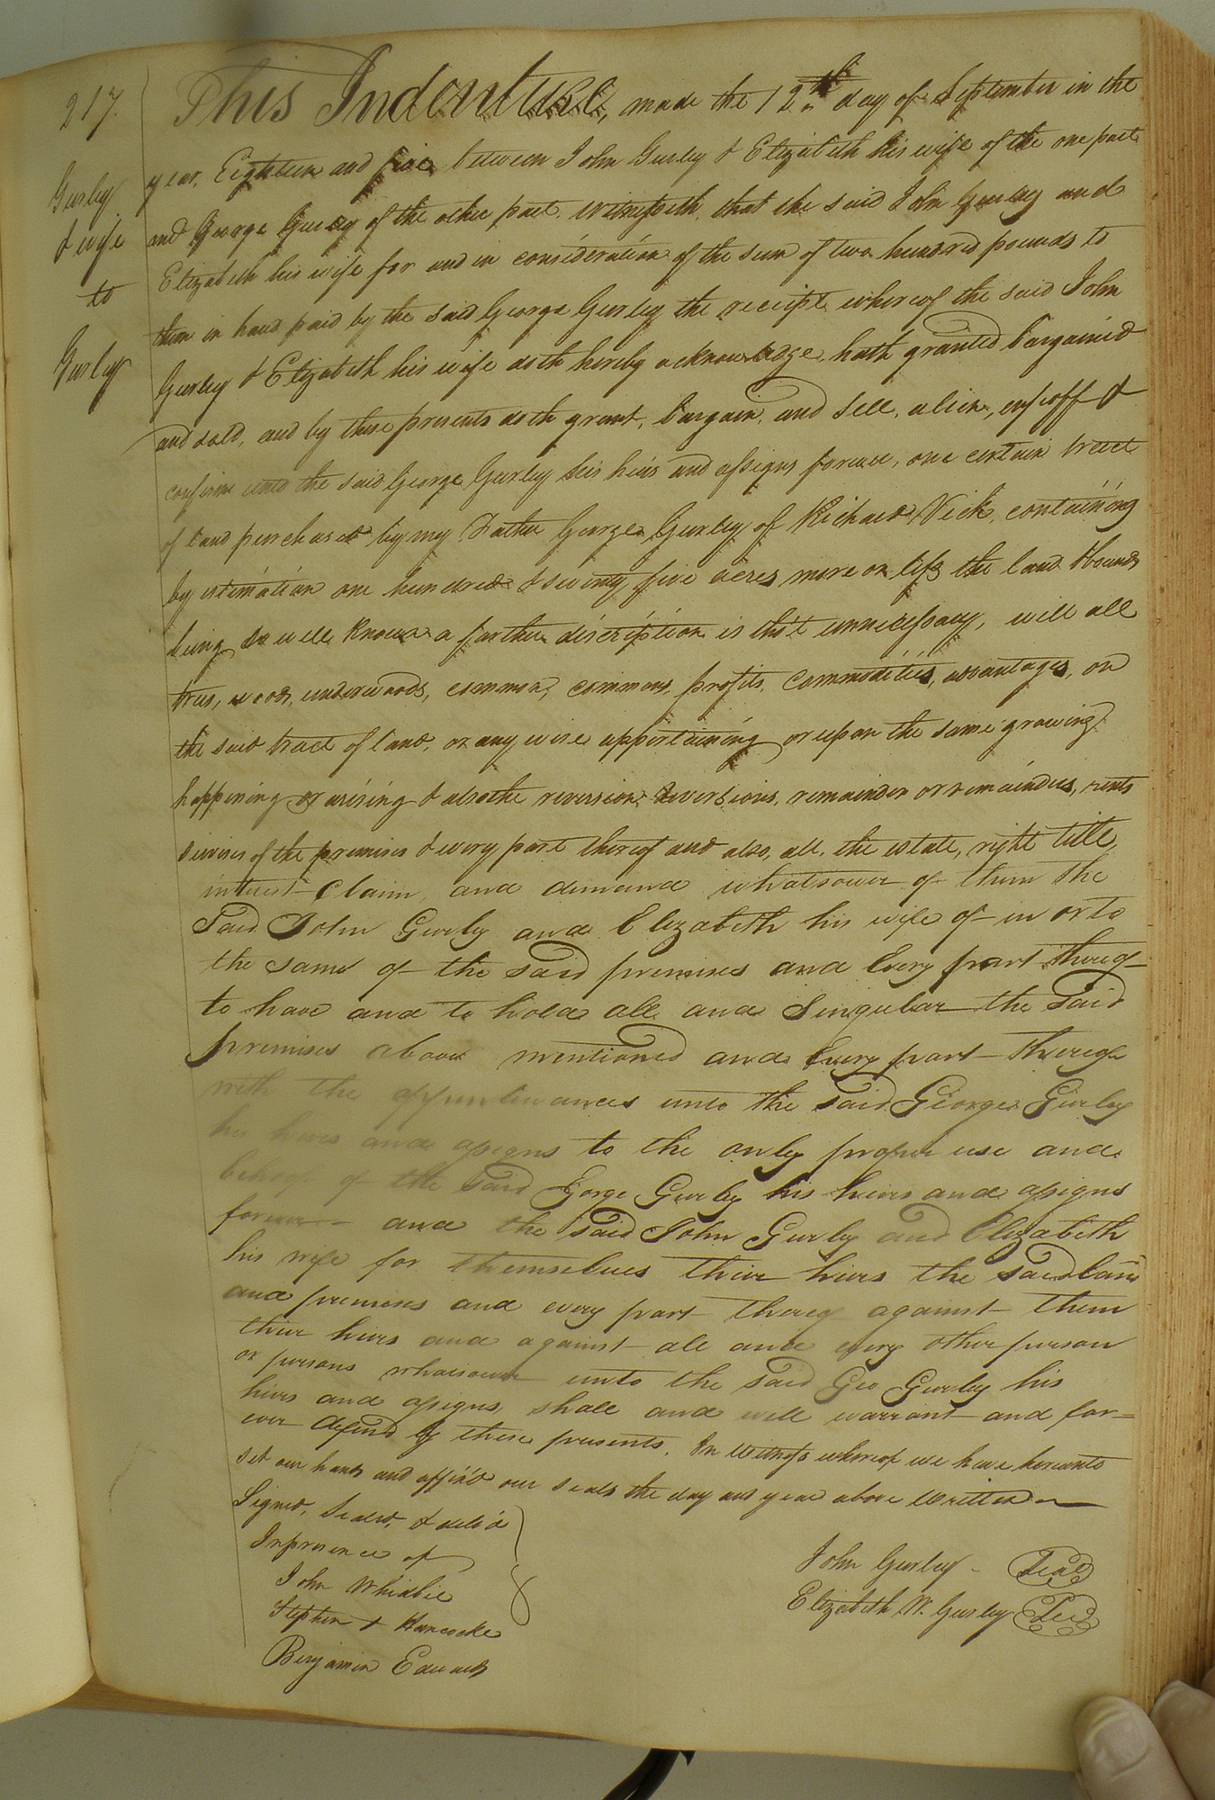 217.
Gurley
& wife
to
Gurley
This Indenture, made the 12th day of September in the
year, Eighteen and five between John Gurley & Elizabeth his wife of the one part
and George Gurley of the other part. Witnesseth, that the said John Gurley and
Elizabeth his wife for and in consideration of the sum of two hundred pounds to
them in hand paid by the said George Gurley the receipt whereof the said John
Gurley & Elizabeth his wife doth hereby acknowledge, hath granted bargained
and sold, and by these presents doth grant, bargain, and sell, alien, enfeoff &
confirm unto the said George Gurley his heirs and assigns forever, one certain tract
of land purchased by my Father George Gurley of Richard Vick, containing
by estimation one hundred & seventy five acres more or less the land & bounds
being so well known a farther discription is tho't unnecessary, will all
trees, woods, underwoods, common, commons, profits, commodities, advantages, on
the said tract of land, or any wise appertaining or upon the same growing
happening or arising & also the reversion, reversions, remainder or remainders, rents
services of the premises & every part thereof and also, all, the estate, right title,
intrest claim and demand whatsoever of them the
Said John Gurley and Elizabeth his wife of in or to
the same of the said premises and Every part thereof
to have and to hold all and Singular the Said
premises above mentioned and Every part thereof
with the appurtinances unto the said George Gurley
his heirs and assigns to the only proper use and
behoof of the said Gorge Gurley his heirs and assigns
forever and the said John Gurley and Elizabeth
his wife for themselves their heirs the said land
and premises and every part thereof against them
their heirs and against all and every other person
or persons whatsoever unto the said Geo Gurley his
heirs and assigns, shall and will warrant and for=
ever defend by these presents. In Witness whereof we have hereunto
set our hands and affix'd our seals the day and year above Written
Signed, Sealed, & deliv'd
In presence of
John Whidbie
Stephen Hancocke
Benjamin Edwards
John Gurley Seal
Elizabeth W. Gurley Seal